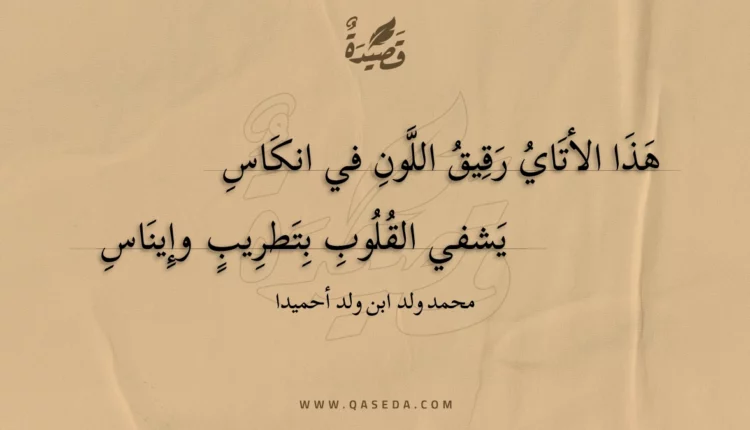 قَصِيْدَةٌ
هَذَا الأتَايُ رَقِيقُ اللَّونِ في انكَاسِ
يَشفي القُلُوبِ بِتَطرِيبٍ وإِينَاسِ
محمد ولد ابن ولد أحميدا
WWW.QASEDA.COM